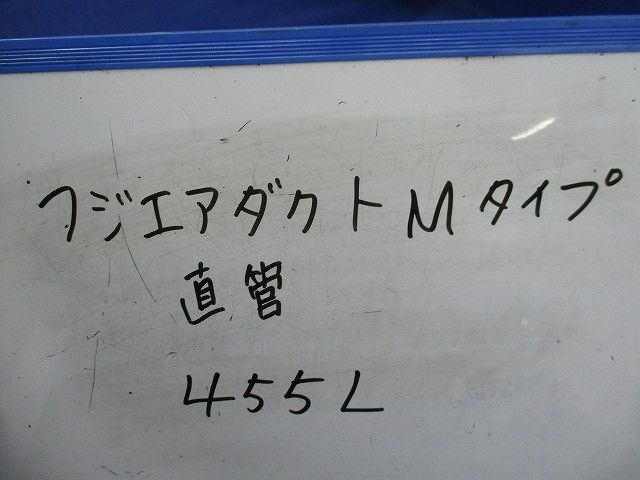 フジエアダクトMタイプ
直管
455L